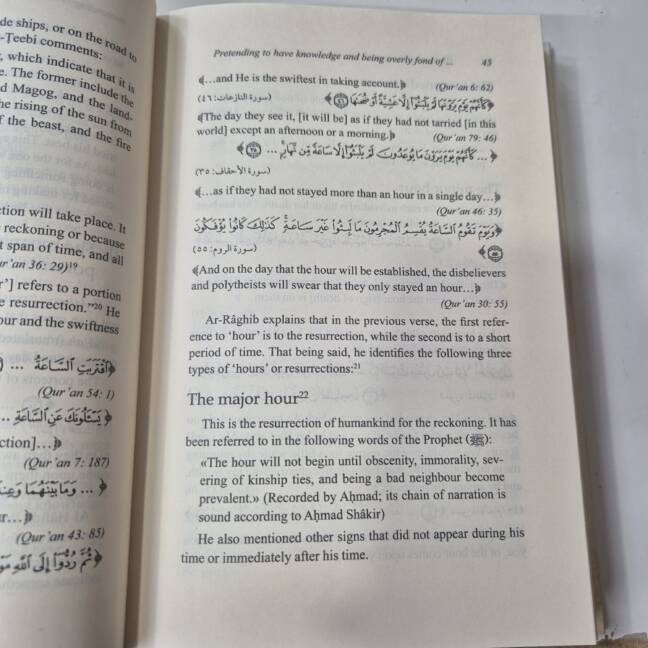 de ships, or on the road to
-Ṭeebi comments:
, which indicate that it is
e. The former include the
d Magog, and the land-
he rising of the sun from
f the beast, and the fire
ction will take place. It
reckoning or because
t span of time, and all
r'an 36: 29)¹⁹
r'] refers to a portion
e resurrection."²⁰ He
our and the swiftness
﴿اقْتَرَبَتِ السَّاعَةُ ...
(Qur'an 54: 1)
﴿يَسْأَلُونَكَ عَنِ السَّاعَةِ ...
ction]...﴾
(Qur'an 7: 187)
﴿... وَمَا بَيْنَهُمَا وَعِن
r...﴾
(Qur'an 43: 85)
﴿ثُمَّ رُدُّوا إِلَى اللَّهِ مَوْ
Pretending to have knowledge and being overly fond of ... 45
﴾...and He is the swiftest in taking account.﴿ (Qur'an 6: 62)
﴿كَأَنَّهُمْ يَوْمَ يَرَوْنَهَا لَمْ يَلْبَثُوا إِلَّا عَشِيَّةً أَوْ ضُحَاهَا ٤٦﴾ (سورة النازعات: ٤٦)
﴾The day they see it, [it will be] as if they had not tarried [in this
world] except an afternoon or a morning.﴿ (Qur'an 79: 46)
﴿... كَأَنَّهُمْ يَوْمَ يَرَوْنَ مَا يُوعَدُونَ لَمْ يَلْبَثُوا إِلَّا سَاعَةً مِّن نَّهَارٍ ... ٣٥﴾
(سورة الأحقاف: ٣٥)
﴾...as if they had not stayed more than an hour in a single day...﴿
(Qur'an 46: 35)
﴿وَيَوْمَ تَقُومُ السَّاعَةُ يُقْسِمُ الْمُجْرِمُونَ مَا لَبِثُوا غَيْرَ سَاعَةٍ ۚ كَذَٰلِكَ كَانُوا يُؤْفَكُونَ
٥٥﴾ (سورة الروم: ٥٥)
﴾And on the day that the hour will be established, the disbelievers
and polytheists will swear that they only stayed an hour...﴿
(Qur'an 30: 55)
Ar-Râghib explains that in the previous verse, the first refer-
ence to 'hour' is to the resurrection, while the second is to a short
period of time. That being said, he identifies the following three
types of 'hours' or resurrections:²¹
The major hour²²
This is the resurrection of humankind for the reckoning. It has
been referred to in the following words of the Prophet (ﷺ):
«The hour will not begin until obscenity, immorality, sev-
ering of kinship ties, and being a bad neighbour become
prevalent.» (Recorded by Aḥmad; its chain of narration is
sound according to Aḥmad Shâkir)
He also mentioned other signs that did not appear during his
time or immediately after his time.